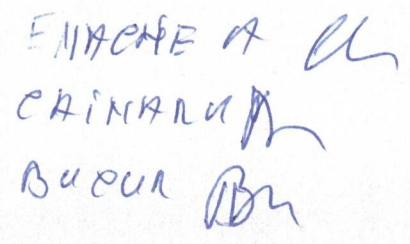 ENACHE A
CAINARU
BUCUR